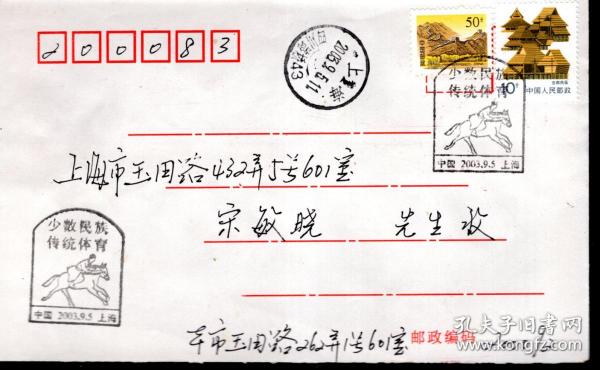 200083
50分
10分
中国人民邮政
上海
2003.9.6.11
少数民族
传统体育
中国 2003.9.5 上海
上海市玉田路432弄5号601室
宋敏晓 先生 收
少数民族
传统体育
中国 2003.9.5 上海
本市玉田路262弄1号601室
邮政编码
孔夫子旧书网